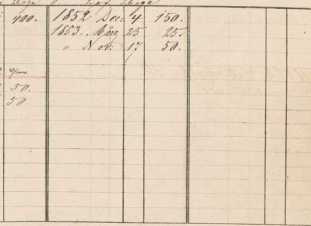 400. 1852 Dec 4 150.
1853. Aug 25 25.
" Nov. 17 50.
50.
50